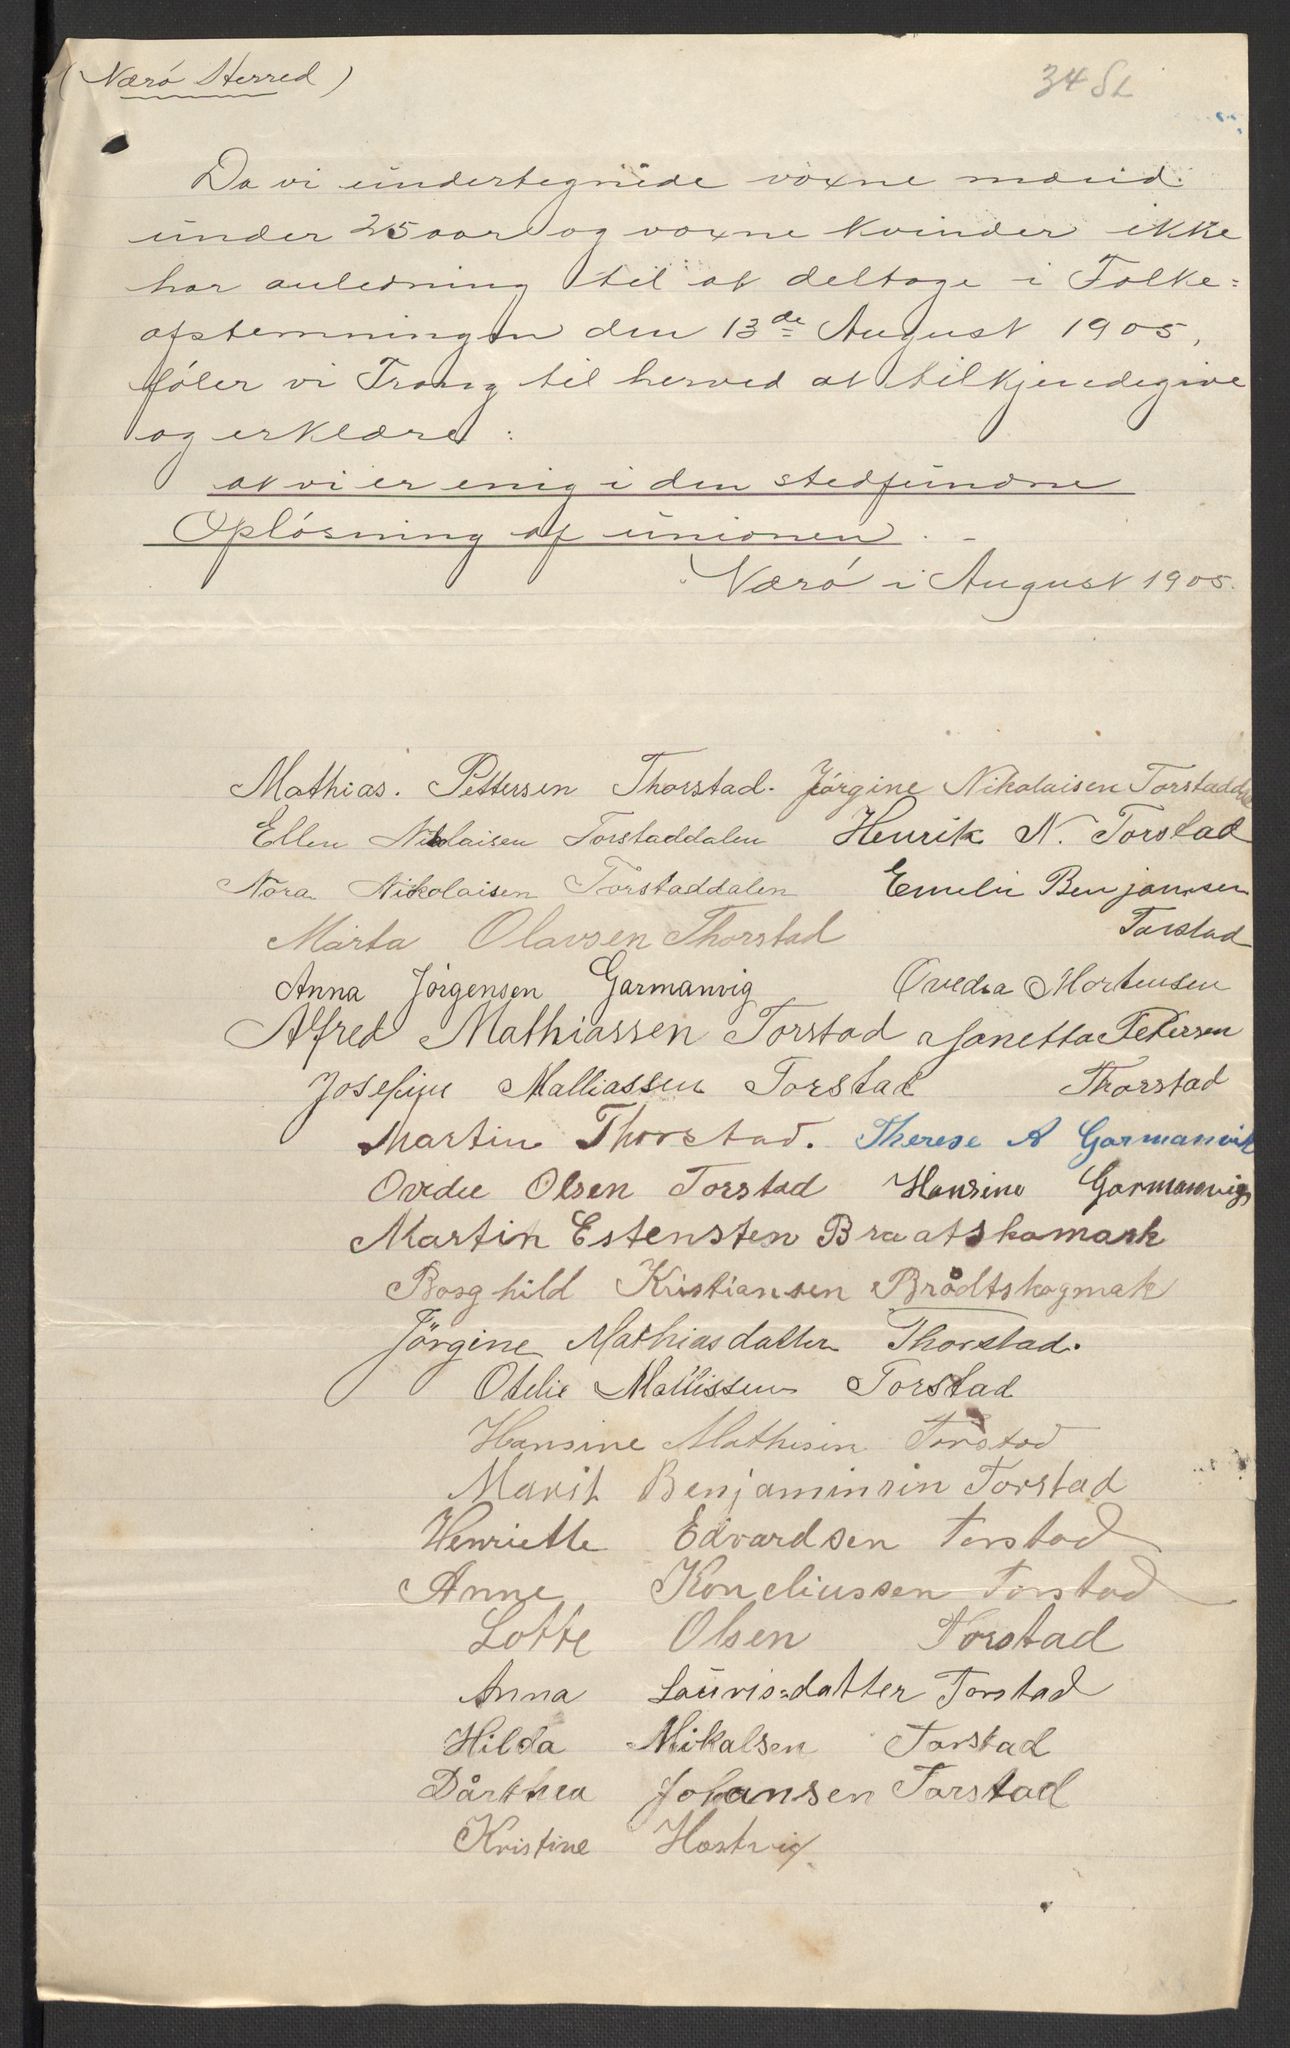 (Nærö Herred)
34 St
Da vi undertegnede voxne mænd
under 25 aar og voxne Kvinder ikke
har anledning til at deltage i Folke=
afstemningen den 13de August 1905,
föler vi Trang til herved at tilkjendegive
og erklære:
at vi er enig i den stedfundne
Oplösning af unionen. -
Nærö i August 1905.
Mathias. Pettersen Thorstad. Jörgine Nikolaisen Torstaddal
Ellen Nikolaisen Torstaddalen Henrik N. Torstad
Nora Nikolaisen Torstaddalen Emelie Benjamsen
Torstad
Marta Olavsen Thorstad
Anna Jörgensen Garmanvig Ovedia Mortensen
Alfred Mathiassen Torstad Janetta Petersen
Thorstad
Josefine Matliassen Torstad
Martin Thorstad. Therese A Garmanvik
Ovedie Olsen Torstad Hansine Garmannvig
Martin Estensten Braatskamark
Borghild Kristiansen Brådtskogmak
Jörgine Mathiasdatter Thorstad.
Otelie Matissen Torstad
Hansine Mathisin Torstad
Marit Benjaminsin Torstad
Henriette Edvardsen Torstad
Anne Koneliussen Torstad
Lotte Olsen Torstad
Anna Laurisdatter Torstad
Hilda Mikalsen Torstad
Dårthea Johansen Torstad
Kristine Hastvig